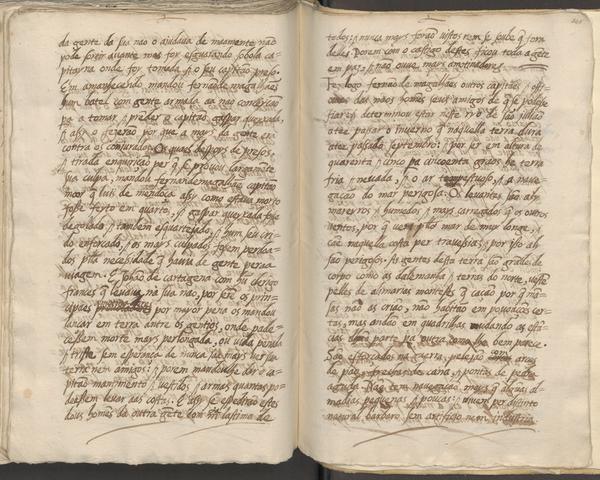 da gente da sua nao o ajudava de maamente, não
pode sortir avante mas foi esguarando sobola ca-
pitayna onde foy tomada, & o seu capitão preso.
Em amanhecendo mandou fernão de magalhães
hum batel com gente armada
pa a tomar, & prender o capitão gaspar quexada,
& assy o fezerão por que a mays da gente era
contra os conjurados. Os quaes despois de presos,
& tirada enquirição per q̃ se provou largamẽte
sua culpa, mandou fernãdemagalhães o capitão
moor q̃ luis de mendoça assy como estava morto
fosse feyto em quartos, & gaspar quexada fosse
degolado, & tambem esquartejado, & hum seu cri-
do enforcado, & os mays culpados fossem perdoa-
dos pola necesidade q̃ havia de gente pera a
viagem. E João de cartagena com hũ clerigo
frances q̃ levava na sua nao, por serẽ os prin-
cipaes por mayor pena os mandou
lançar em terra antre os gentios, onde pade-
cessem morte mays perlongada, ou vida penada
& triste sem esperança de nunca mays ver sua
terra nem amigos: & porem mandoulhe dar o ca-
pitão mantimento, & vestidos, & armas quantas po-
dessem levar aas costas. E assy se espedirão estes
dous homẽs da outra gẽte com lastima de
todos; & nunca mays forão vistos nem se soube q̃ fora
delles. Porem com o castigo destes ficou toda a gẽte
em paz, & não ouve mays amotinadores.
Fez logo fernão de magalhães outros capitães, & offi-
ciaes das nãos homẽs seus amigos de q̃ se podesse
fiar, & determinou estar neste rio de são julião
atee passar o inverno q̃ naquella terra dura
atee passado septembro: & por ser em altura de
quarenta & cinco pa cincoenta graos he terra
fria & nevada, & o ar tempestuoso, & a nave-
gação do mar perigosa. Os levantes são aly
mareyros & humedos, & mays carregados q̃ os outros
ventos, por q̃ vem pelo mar de muy longe, &
cae naquella costa per travessia, & por isso aly
são perigosos. As gentes desta terra são grãdes de
corpo como as dalemanha, & terras do norte, vestẽ
pelles de alimarias monteses q̃ cação por q̃ mã-
sas não as crião, não habitão em povoações cer-
tas, mas andão em quadrilhas mudando as estã-
cias pera parte pa outra como lhe bem parece.
São esforçados na guerra, pelejão com arcos
de pao, & frechas de cana, & pontas de pedra
aguda. Não tem navegação mays q̃ algũas al-
madias pequenas, & poucas: & vivem per distinto
natural barbaro sem artificio nem industria.